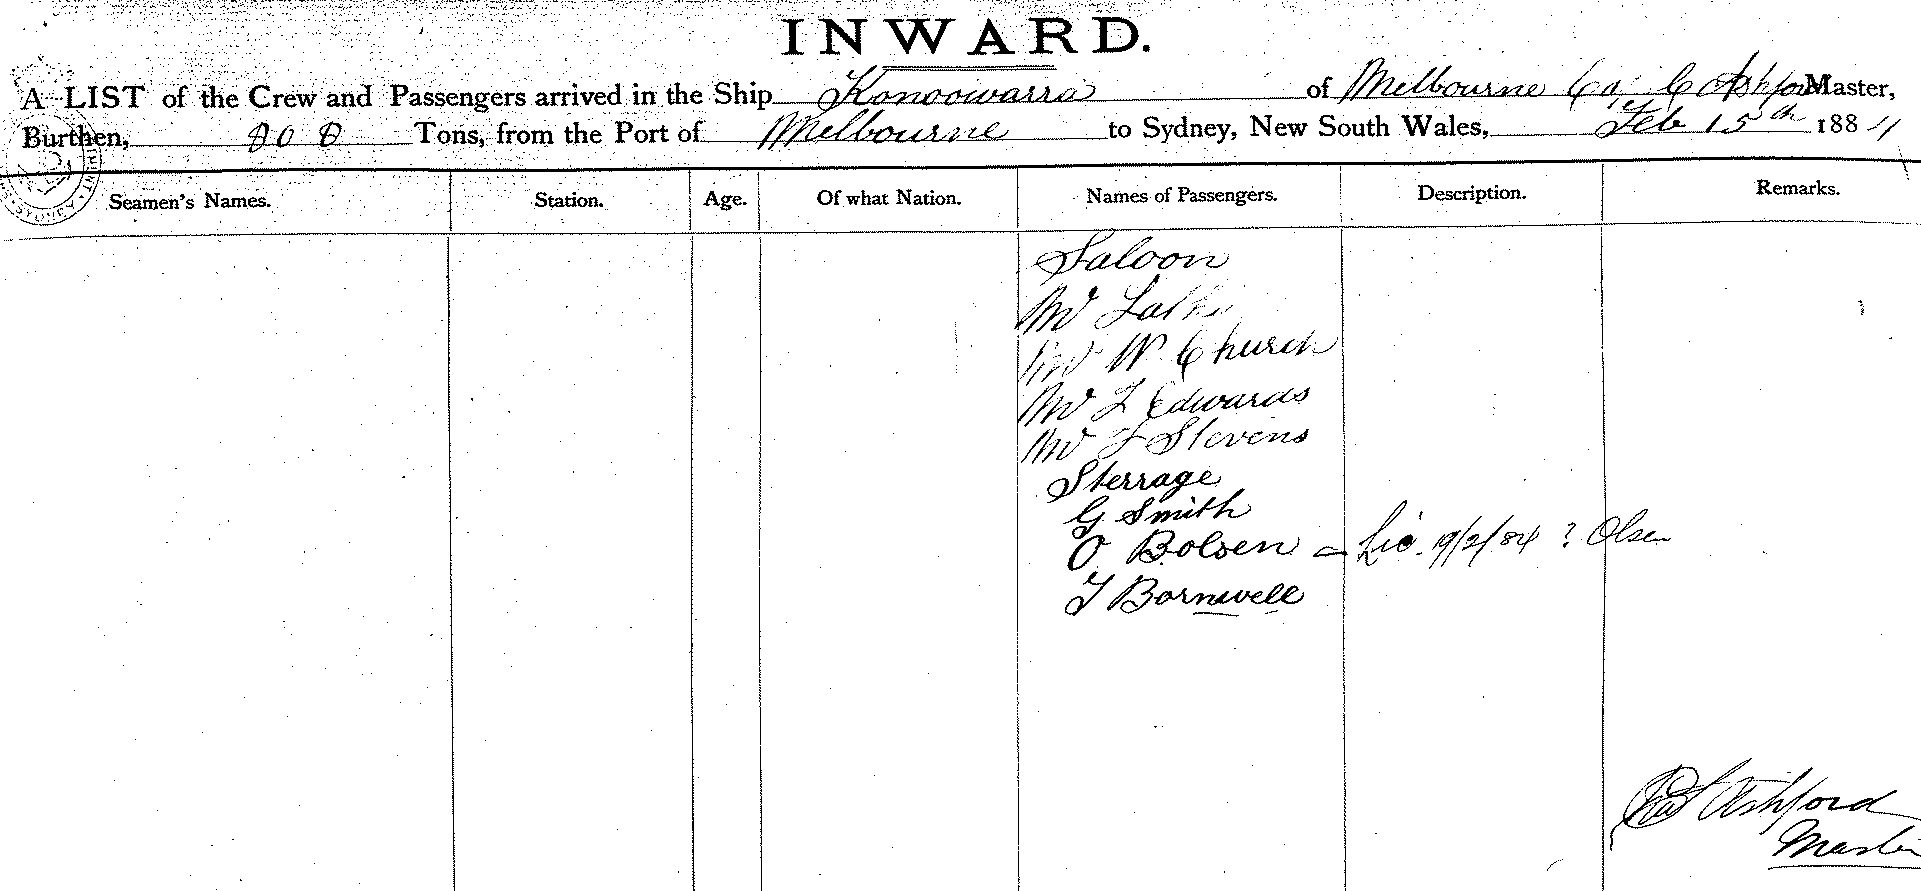 INWARD.
A LIST of the Crew and Passengers arrived in the Ship Konoowarra of Melbourne Co, C Ashford Master,
Burthen, 800 Tons, from the Port of Melbourne to Sydney, New South Wales, Feb 15th 1884
Seamen's Names. Station. Age. Of what Nation. Names of Passengers. Description. Remarks.
Saloon
Mr
Mr W Church
Mr Edwards
Mr Stevens
Sterrage
G Smith
O Bolsen = Lic. 19/2/84 ? Olsen
Bornwell
Ashford
Master